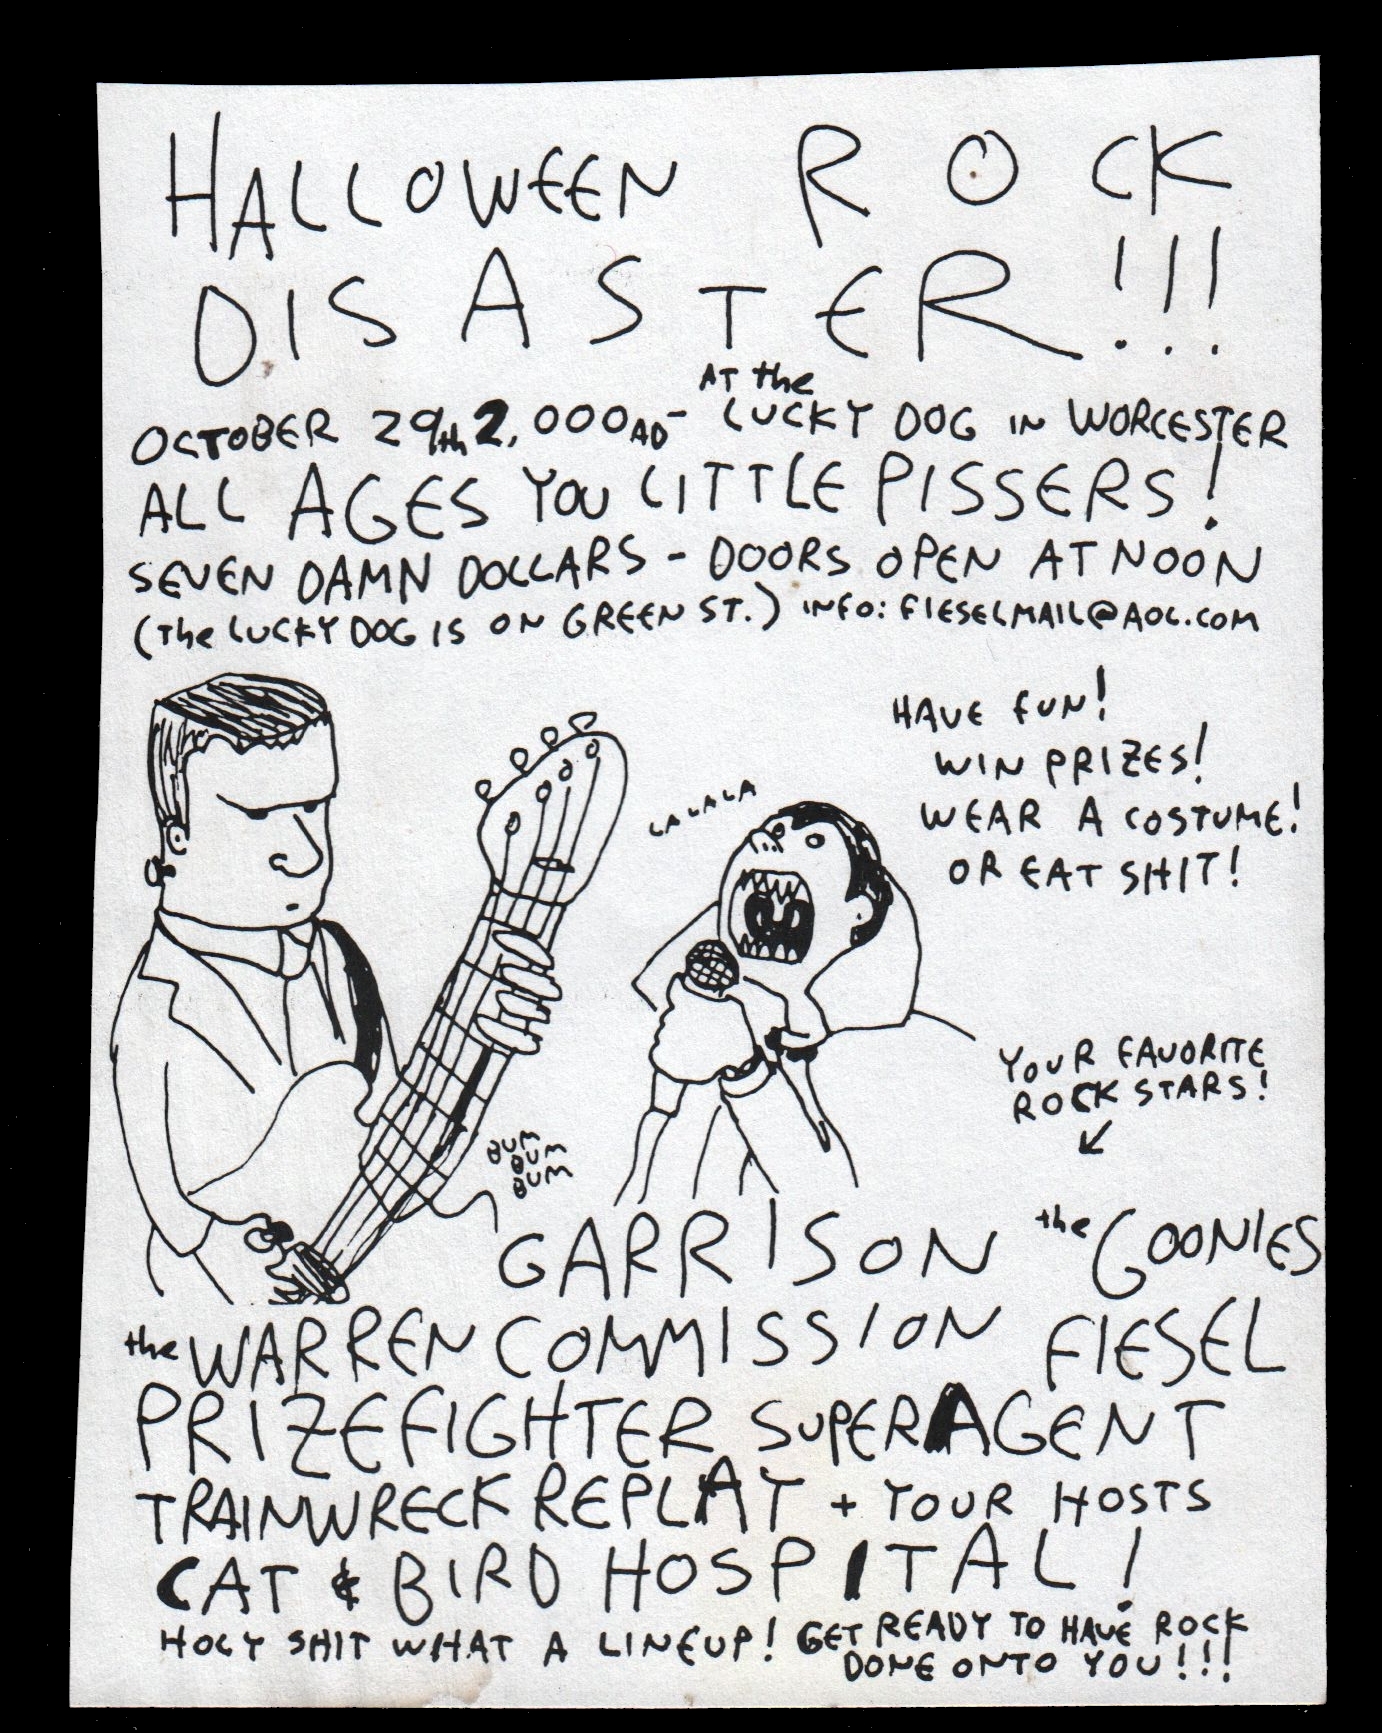 HALLOWEEN ROCK
DISASTER!!!
AT the
OCTOBER 29th 2,000AD - LUCKY DOG IN WORCESTER
ALL AGES YOU LITTLE PISSERS!
SEVEN DAMN DOLLARS - DOORS OPEN AT NOON
(The LUCKY DOG IS ON GREEN ST.) INFO: FIESELMAIL@AOL.COM
HAVE FUN!
WIN PRIZES!
WEAR A COSTUME!
OR EAT SHIT!
LA LA LA
YOUR FAVORITE
ROCK STARS!
BUM
BUM
BUM
GARRISON the GOONIES
the WARREN COMMISSION FIESEL
PRIZEFIGHTER SUPERAGENT
TRAINWRECK REPLAY + YOUR HOSTS
CAT & BIRD HOSPITAL!
HOLY SHIT WHAT A LINEUP! GET READY TO HAVE ROCK
DONE ONTO YOU!!!